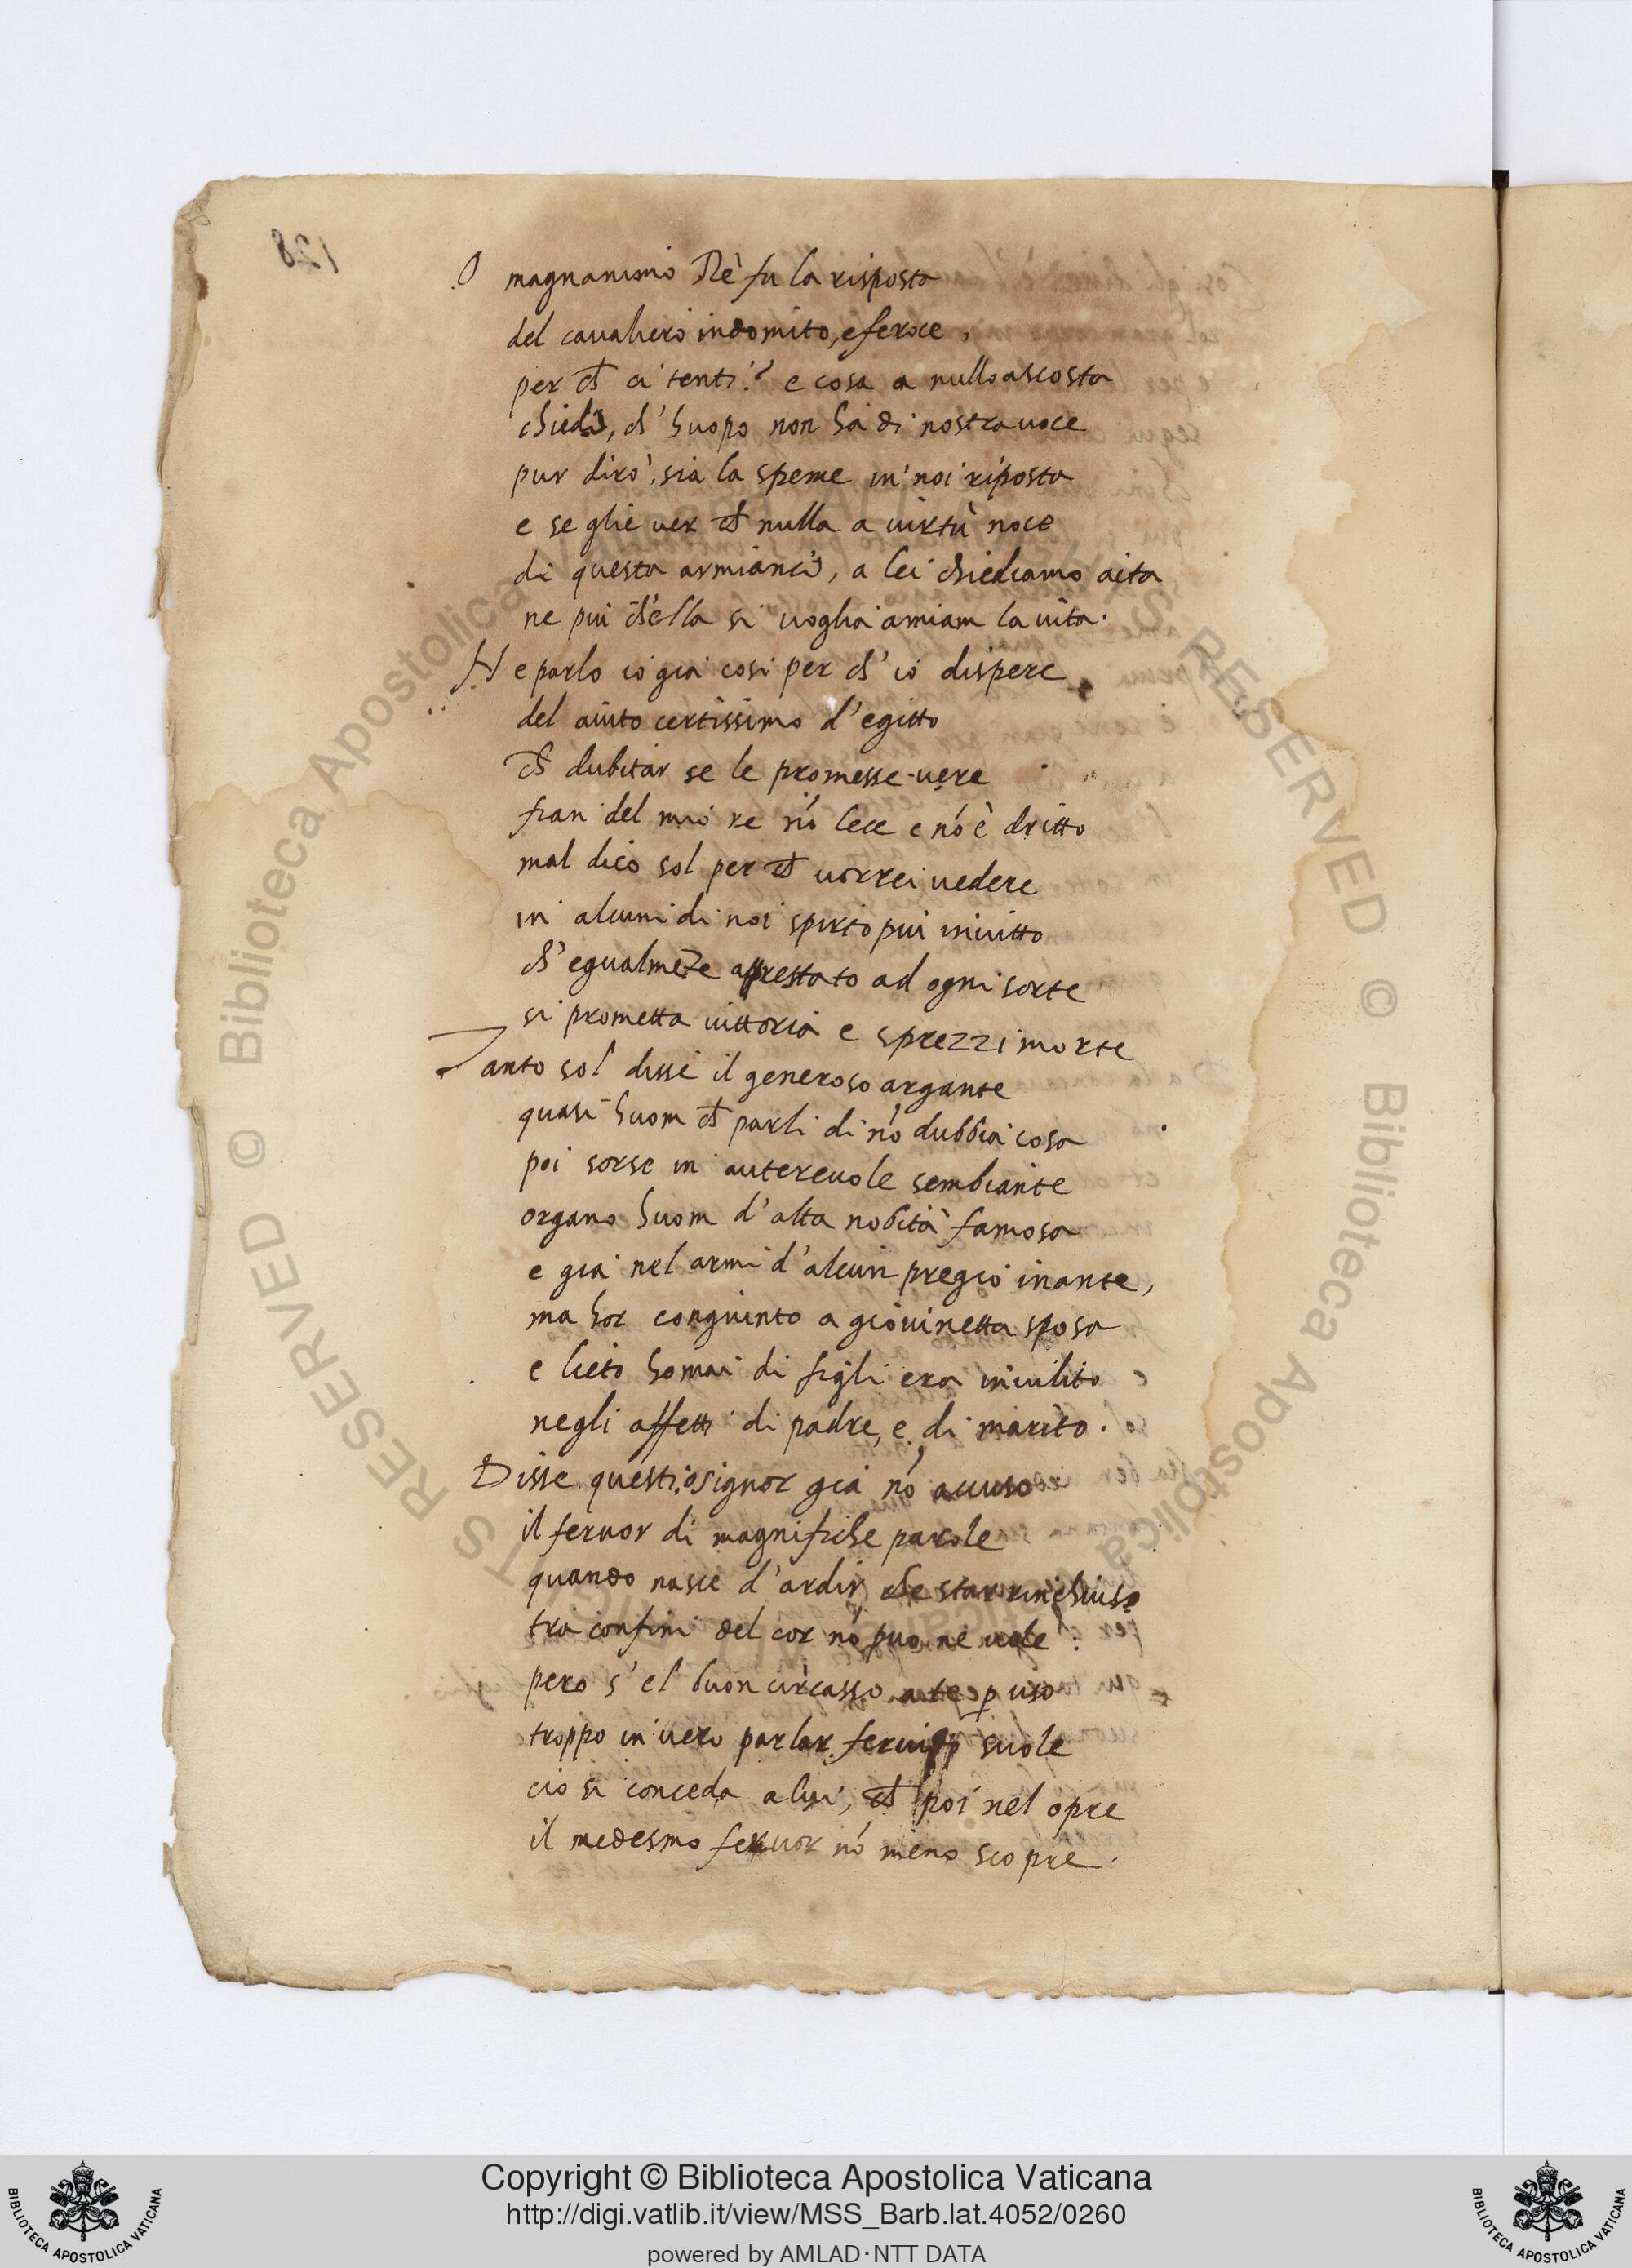 128
O magnanimo Rè fu la risposta
del cavaliero indomito, e feroce,
per ch̄ ci tenti? e cosa a nullo ascosta
chiedi, ch'huopo non ha di nostra uoce
pur dirò, sia la speme in noi riposta
e se glie uer ch̄ nulla a uirtù noce
di questa armianci, a lei chiediamo aita
ne piu ch'ella si uoglia amiam la uita.
Ne parlo io gia cosi per ch'io dispere
del aiuto certissimo d'egitto
ch̄ dubitar se le promesse uere
fian del mio re nō lece e nō è dritto
mal dico sol per ch̄ uorrei uedere
in alcuni di noi spirto piu inuitto
ch'egualmēte apprestato ad ogni sorte
si prometta uittoria e sprezzi morte
Tanto sol disse il generoso argante
quasi huom ch̄ parli di nō dubbia cosa
poi sorse in auterevole sembiante
organo huom d'alta nobità famosa
e gia nel armi d'alcun pregio inante,
ma hor congiunto a giouinetta sposa
e lieto homai di figli era inuilito
negli affetti di padre, e di marito.
Disse questi, o signor gia nō accuso
il feruor di magnifiche parole
quando nasce d'ardir che star rinchiuso
tra confini del cor nō puo ne uole
pero s'el buon circasso a te p uso
troppo in uero parlar feruido suole
cio si conceda a lui, ch̄ poi nel opre
il medesmo feruor nō meno scopre.
RESERVED © Biblioteca Apostolica Vaticana
Copyright © Biblioteca Apostolica Vaticana
http://digi.vatlib.it/view/MSS_Barb.lat.4052/0260
powered by AMLAD·NTT DATA
BIBLIOTECA APOSTOLICA VATICANA
BIBLIOTECA APOSTOLICA VATICANA